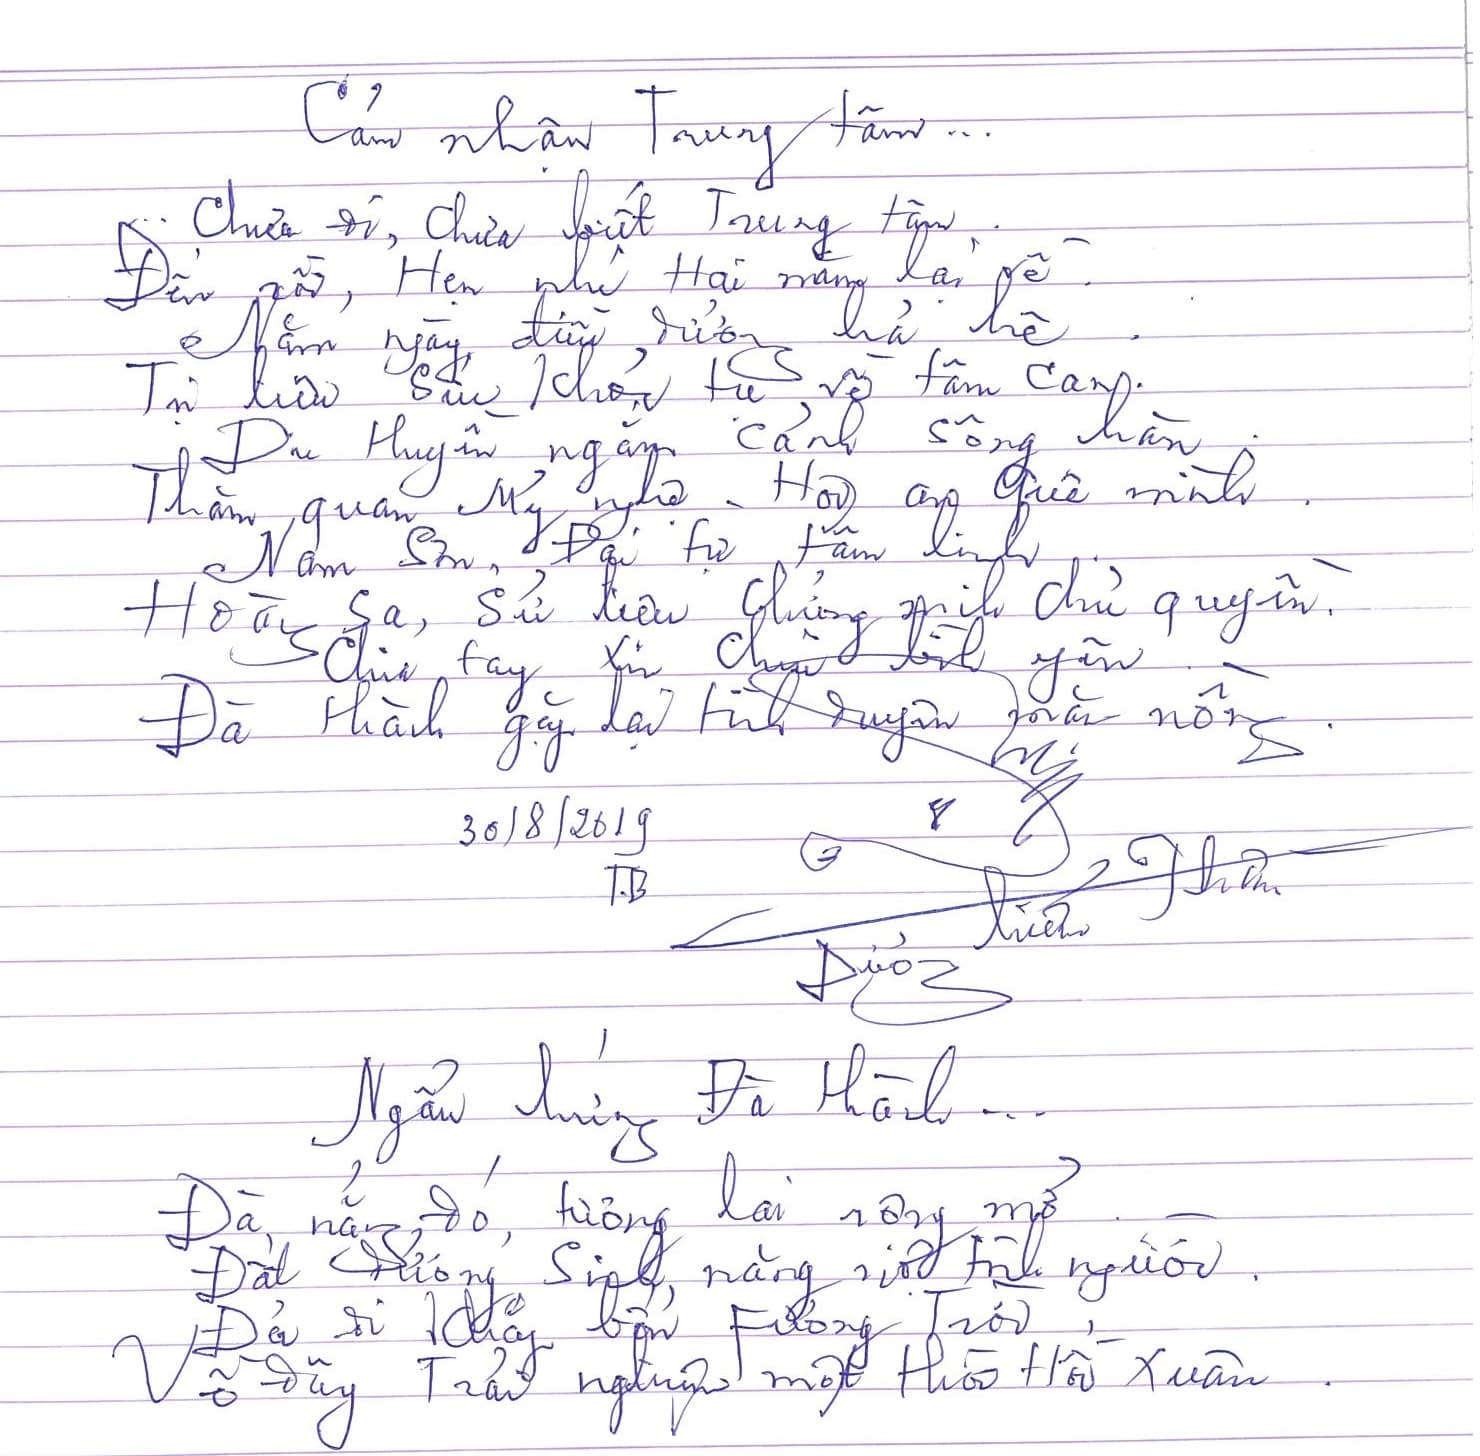 Cảm nhận Trung tâm...
Chưa đi, chưa biết Trung tâm.
Đến rồi, Hẹn nhé Hai năm lại về.
Năm ngày điều dưỡng hả hê.
Trị liệu Sức khỏe từ về tâm can.
Du thuyền ngắm cảnh sông hàn.
Thăm quan Mỹ nghệ - Hội an Quê mình.
Nam Sơn, Đại tự tâm linh.
Hoàng Sa, Sử liệu Chứng minh chủ quyền.
Chia tay xin Chúc bình yên.
Đà thành gặp lại tình duyên mặn nồng.
30/8/2019
T.B
Thân
Dưỡng
Ngẫu hứng Đà thành...
Đà nẵng đó, tương lai rộng mở.
Đất dưỡng Sinh, nặng tình người.
Đã đi khắp bốn Fương Trời,
Về đây Trải nghiệm một thời Hồi Xuân.